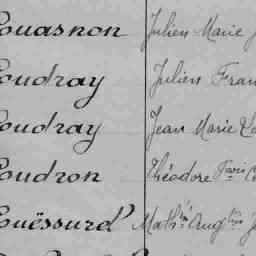 Couasnon Julien Marie J
Coudray Julien Fran
Coudray Jean Marie Lo
Coudron Théodore Fois C
Couëssurel Mathin Augtin J